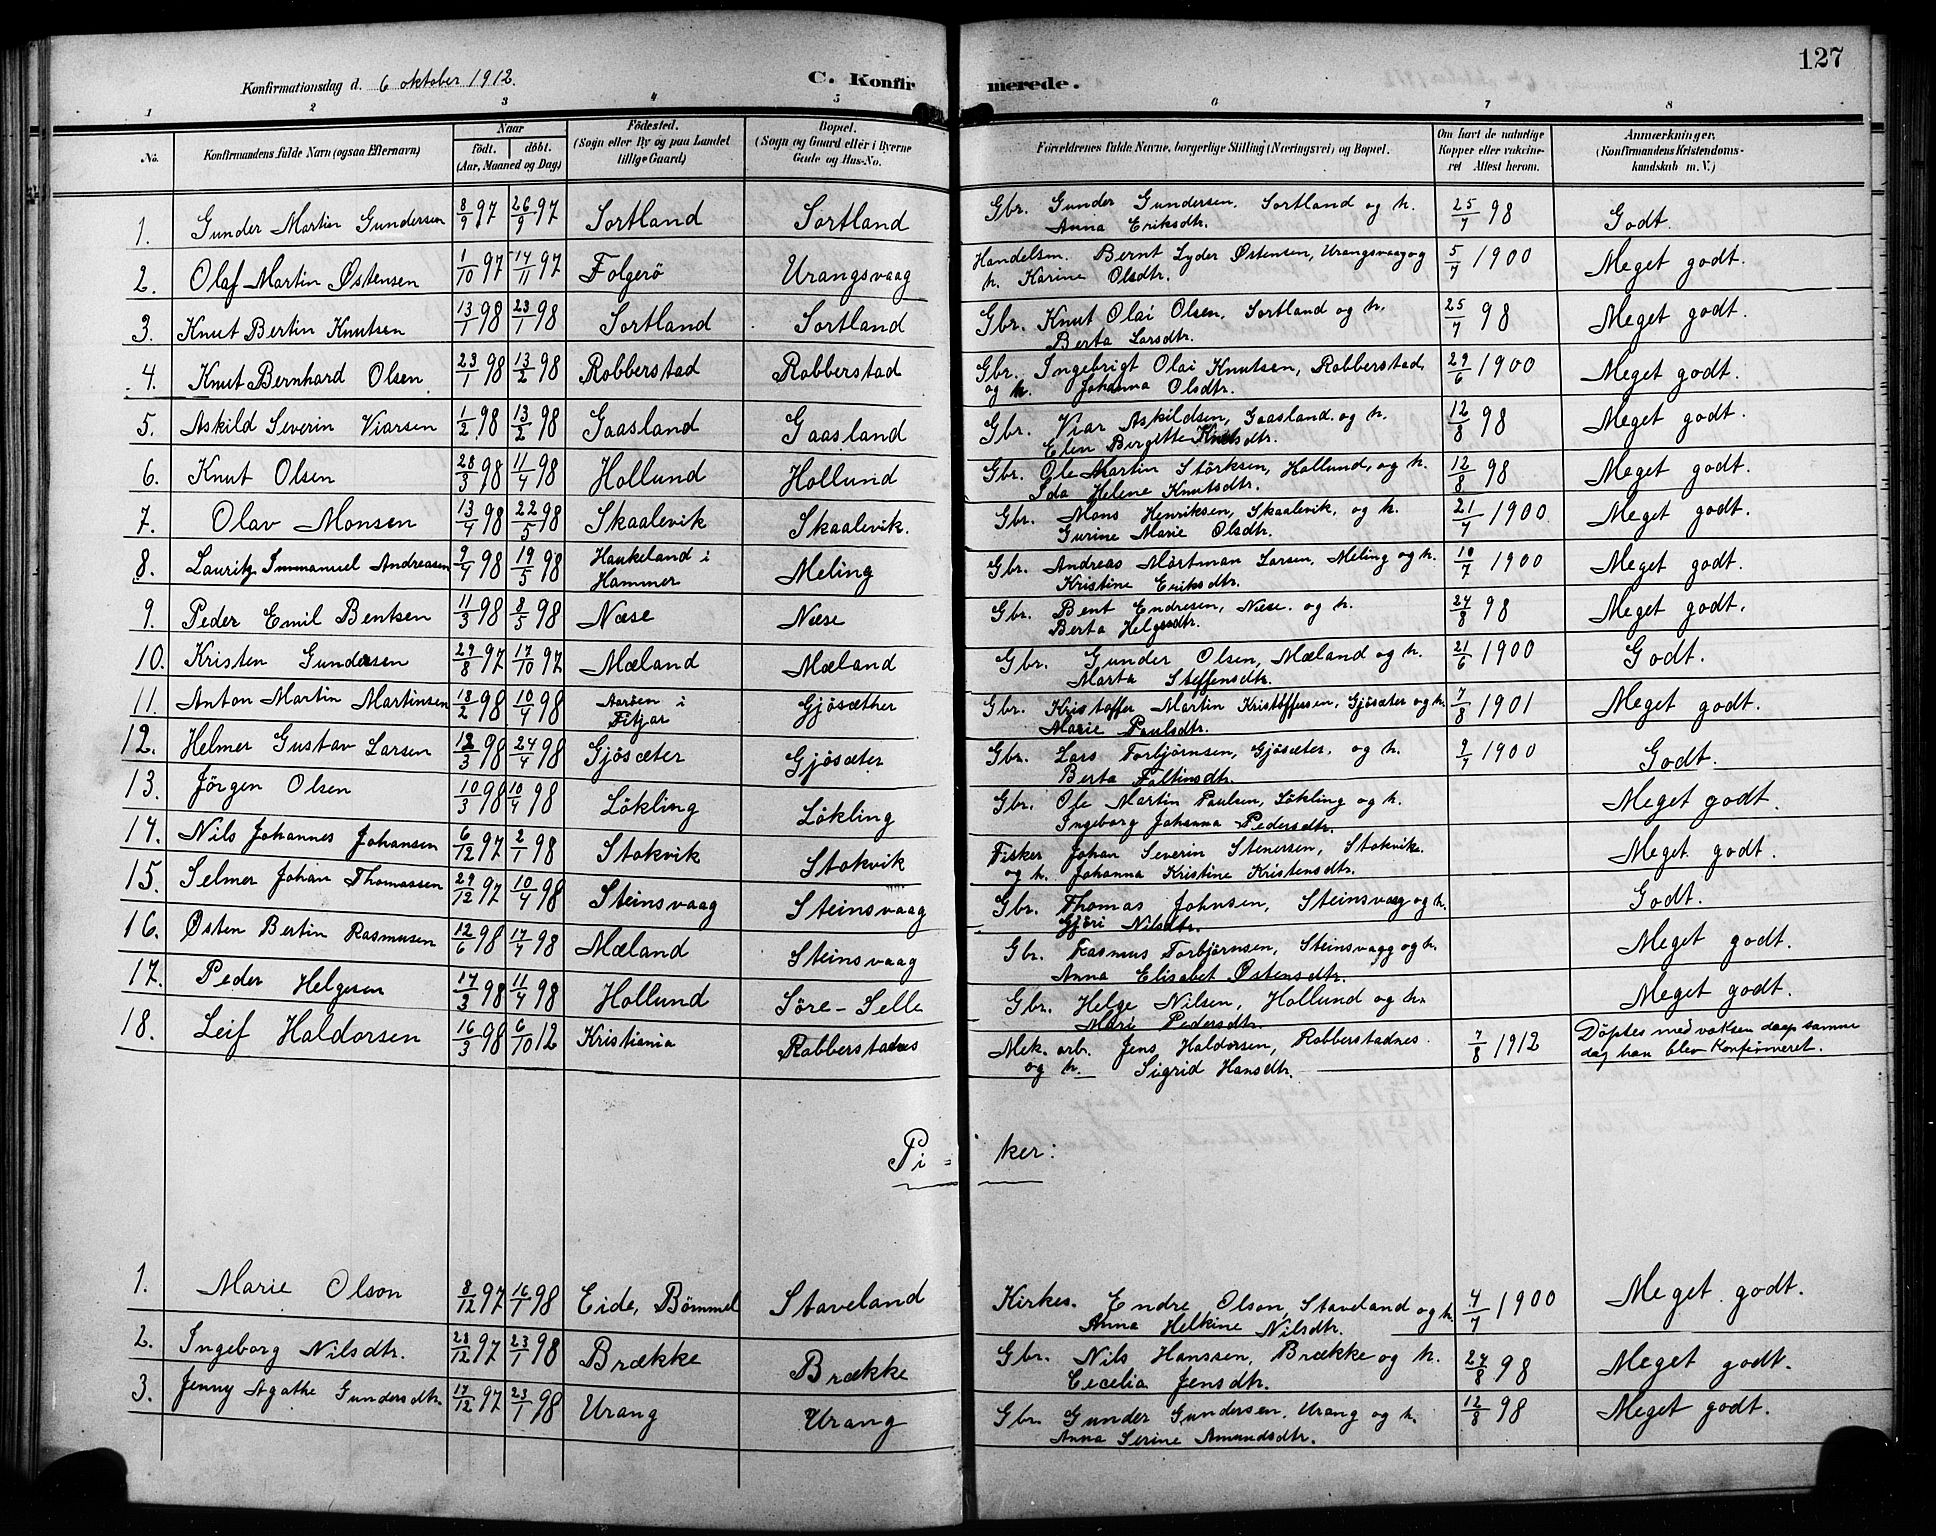 127
Konfirmationsdag d. 6 oktober 1912.
C. Konfirmerede.
1 2 3 4 5 6 7 8
No. Konfirmandens fulde Navn (ogsaa Efternavn) Naar födt. döbt. (Aar, Maaned og Dag) Födested. (Sogn eller By og paa Landet tillige Gaard) Bopæl. (Sogn og Gaard eller i Byerne Gade og Hus-No. Forældrenes fulde Navne, borgerlige Stilling (Næringsvei) og Bopæl. Om havt de naturlige Kopper eller vakcineret Attest herom. Anmærkninger. (Konfirmandens Kristendomskundskab m. V.)
1. Gunder Martin Gundersen 8/9 97 26/9 97 Sortland Sortland Gbr. Gunder Gundersen, Sortland og h. Anna Eriksdtr. 25/7 98 Godt.
2. Olaf Martin Østensen 1/10 97 14/11 97 Folgerö Urangsvaag Handelsm. Bernt Lyder Østensen, Urangsvaag og h. Karine Olsdtr. 5/7 1900 Meget godt.
3. Knut Bertin Knutsen 13/1 98 23/1 98 Sortland Sortland Gbr. Knut Olai Olsen, Sortland og h. Berta Larsdtr. 25/7 98 Meget godt.
4. Knut Bernhard Olsen 23/1 98 13/2 98 Robberstad Robberstad Gbr. Ingebrigt Olai Knutsen, Robberstad og h. Johanna Olsdtr. 29/6 1900 Meget godt.
5. Askild Severin Viarsen 1/2 98 13/2 98 Gaasland Gaasland Gbr. Viar Askildsen, Gaasland og h. Elen Bergitte Knutsdtr. 12/8 98 Meget godt.
6. Knut Olsen 28/3 98 11/4 98 Hollund Hollund Gbr. Ole Martin Störksen, Hollund, og h. Ida Helene Knutsdtr. 12/8 98 Meget godt.
7. Olav Monsen 13/4 98 22/5 98 Skaalevik Skaalevik. Gbr. Mons Henriksen, Skaalevik, og h. Gurine Marie Olsdtr. 21/7 1900 Meget godt.
8. Lauritz Immanuel Andreasen 9/4 98 19/5 98 Haukeland i Hammer Meling Gbr. Andreas Mortman Larsen, Meling og h. Kristine Eriksdtr. 10/7 1900 Meget godt.
9. Peder Emil Bentsen 11/3 98 8/5 98 Næse Næse Gbr. Bent Endresen, Næse. og h. Berta Helgesdtr. 24/8 98 Meget godt.
10. Kristen Gundersen 29/8 97 17/10 97 Mæland Mæland Gbr. Gunder Olsen, Mæland og h. Marta Steffensdtr. 21/6 1900 Godt.
11. Anton Martin Martinsen 18/2 98 10/4 98 Aaröen i Fitjar Gjösæther Gbr. Kristoffer Martin Kristoffersen, Gjösæter og h. Marie Paulsdtr. 7/8 1901 Meget godt.
12. Helmer Gustav Larsen 12/3 98 24/4 98 Gjösæter Gjösæter Gbr. Lars Torbjørnsen, Gjösæter, og h. Berta Faltinsdtr. 9/7 1900 Godt.
13. Jörgen Olsen 10/3 98 10/4 98 Lökling Lökling Gbr. Ole Martin Paulsen, Lökling og h. Ingeborg Johanna Pedersdtr. Meget godt.
14. Nils Johannes Johansen 6/12 97 2/1 98 Stokvik Stokvik Fisker Johan Severin Stenersen, Stokvik. og h. Johanna Kristine Kristensdtr. Meget godt.
15. Selmer Johan Thomassen 29/12 97 10/4 98 Steinsvaag Steinsvaag Gbr. Thomas Johnsen, Steinsvaag og h. Gjöri Nilsdtr. Godt.
16. Østen Bertin Rasmusen 12/6 98 17/7 98 Mæland Steinsvaag Gbr. Rasmus Torbjørnsen, Steinsvagg og h. Anna Elisabet Østensdtr. Meget godt.
17. Peder Helgesen 17/3 98 11/4 98 Hollund Söre-Selle Gbr. Helge Nilsen, Hollund og h. Mari Pedersdtr. Meget godt.
18. Leif Haldorsen 16/3 98 6/10 12 Kristiania Robberstadnes Mek. arb. Jens Haldorsen, Robberstadnes. og h. Sigrid Hansdtr. 7/8 1912 Döptes med voksen daap samme dag han blev konfirmeret.
Pi-ker:
1. Marie Olson 8/12 97 16/1 98 Eide, Bömmel Staveland Kirkes. Endre Olson, Staveland og h. Anna Helkine Nilsdtr. 4/7 1900 Meget godt.
2. Ingeborg Nilsdtr. 28/12 97 23/1 98 Brække Brække Gbr. Nils Hanssen, Brække og h. Cecelia Jensdtr. 24/8 98 Meget godt.
3. Jenny Agathe Gundersdtr. 17/12 97 23/1 98 Urang Urang Gbr. Gunder Gundersen, Urang og h. Anna Serine Amundsdtr. 12/8 98 Meget godt.